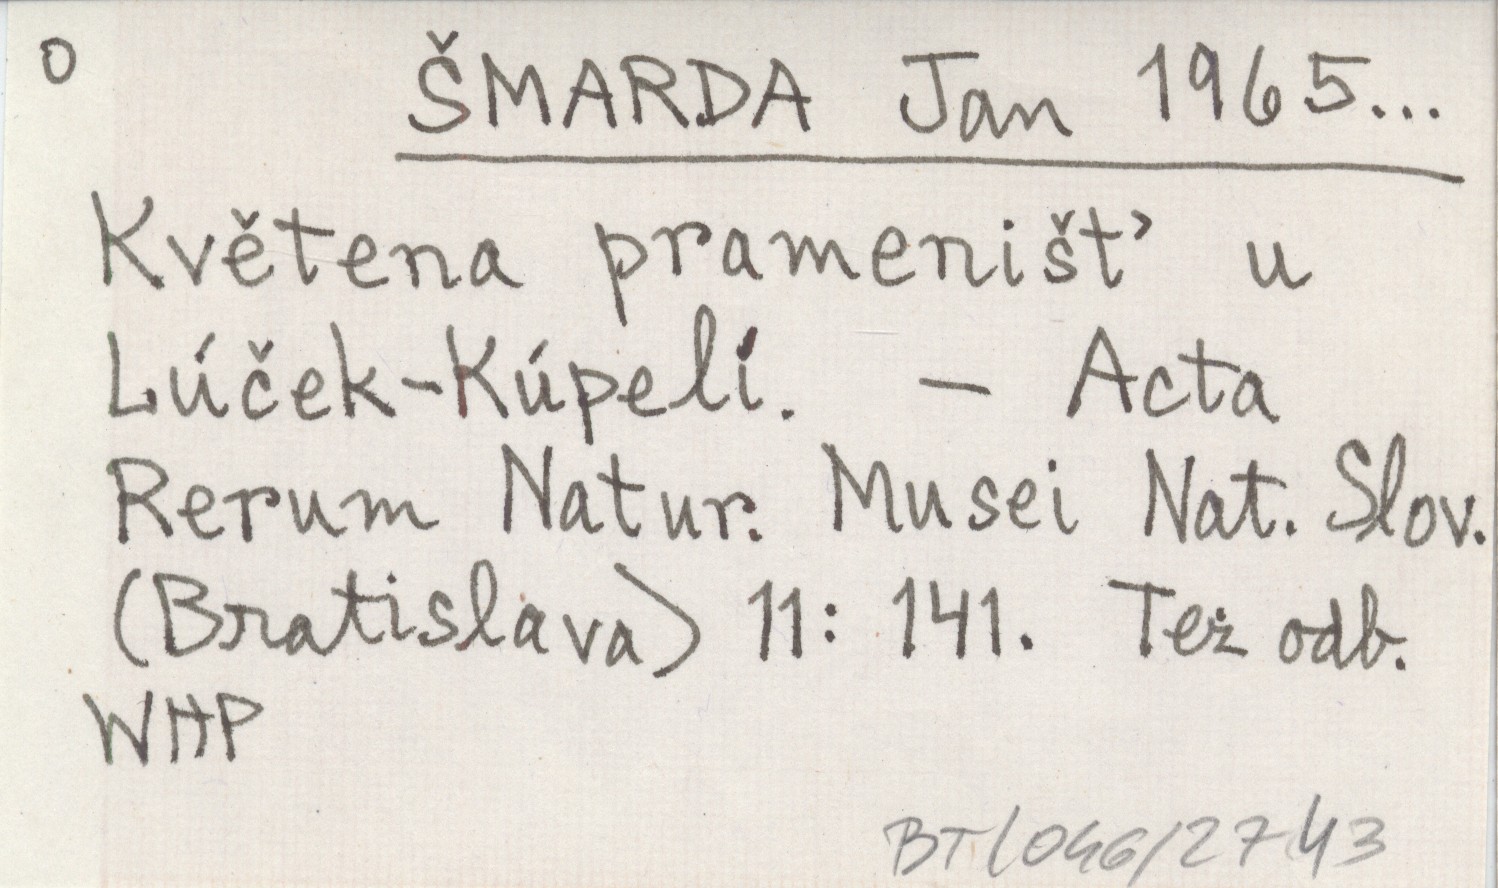 o ŠMARDA Jan 1965...
Květena pramenišť u
Lúček-Kúpelí. – Acta
Rerum Natur. Musei Nat. Slov.
(Bratislava) 11: 141. Též odb.
WHP
BT/046/2743